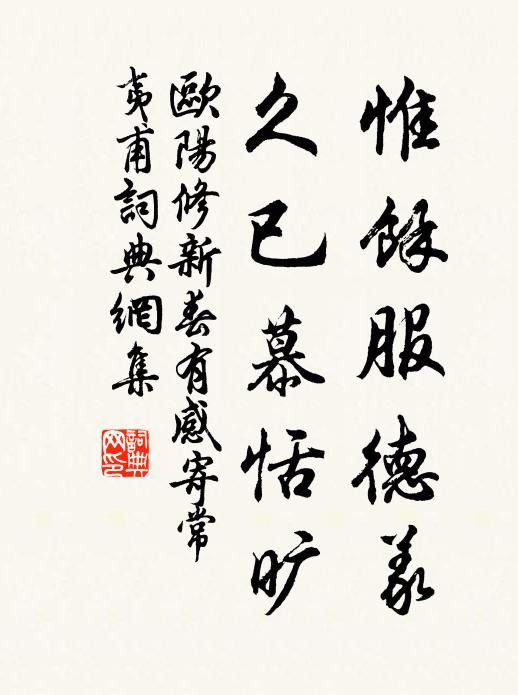 惟餘服德義
久已慕恬旷
歐陽修新春有感寄常
夷甫詞典網集
詞典网印